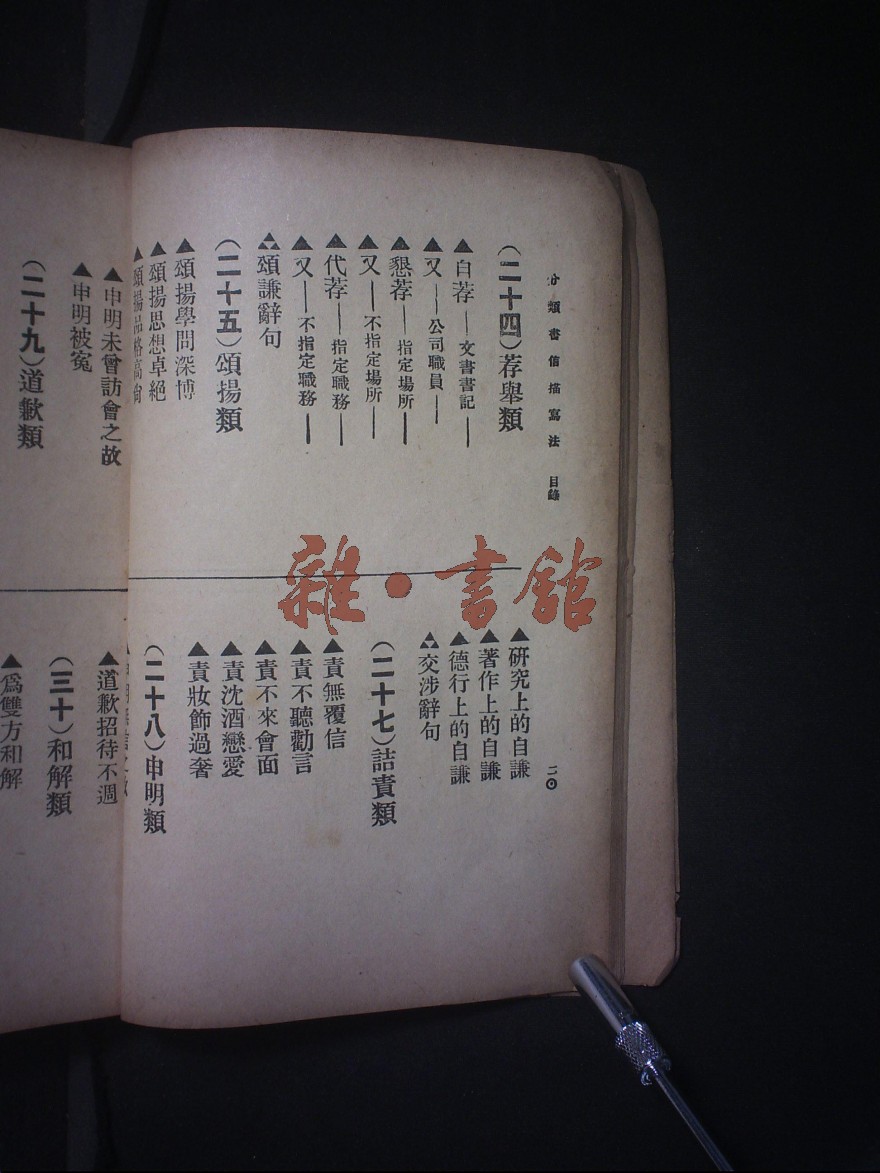 分類書信描寫法 目錄
二〇
（二十四）荐舉類
▲自荐——文書書記——
▲又——公司職員——
▲懇荐——指定場所——
▲又——不指定場所——
▲代荐——指定職務——
▲又——不指定職務——
頌謙辭句
（二十五）頌揚類
▲頌揚學問深博
▲頌揚思想卓絕
▲頌揚品格高尙
▲研究上的自謙
▲著作上的自謙
▲德行上的自謙
交涉辭句
（二十七）詰責類
▲責無覆信
▲責不聽勸言
▲責不來會面
▲責沈酒戀愛
▲責妝飾過奢
（二十八）申明類
▲申明未曾訪會之故
▲申明被冤
（二十九）道歉類
▲道歉招待不週
（三十）和解類
▲爲雙方和解
雜·書館